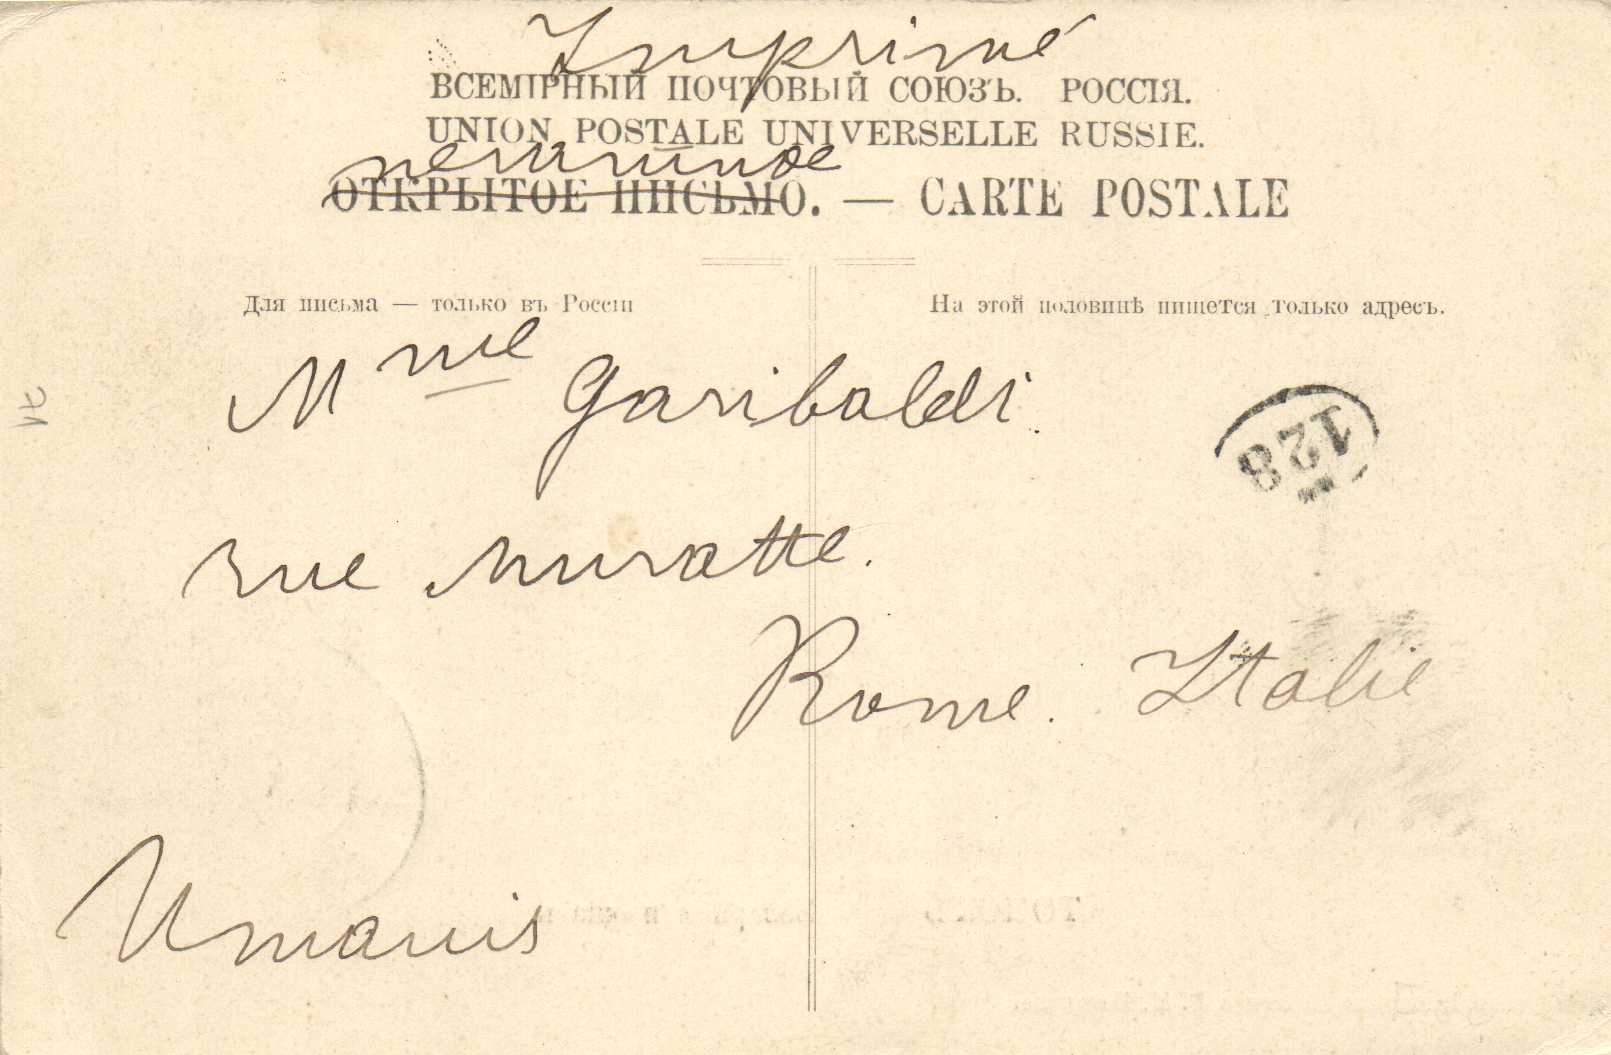 Imprimé
ВСЕМІРНЫЙ ПОЧТОВЫЙ СОЮЗЪ. РОССІЯ.
UNION POSTALE UNIVERSELLE RUSSIE.
ОТКРЫТОЕ ПИСЬМО. — CARTE POSTALE
Для письма — только въ Россіи
На этой половинѣ пишется только адресъ.
Mme Garibaldi.
128
rue Muratte.
Rome. Italie